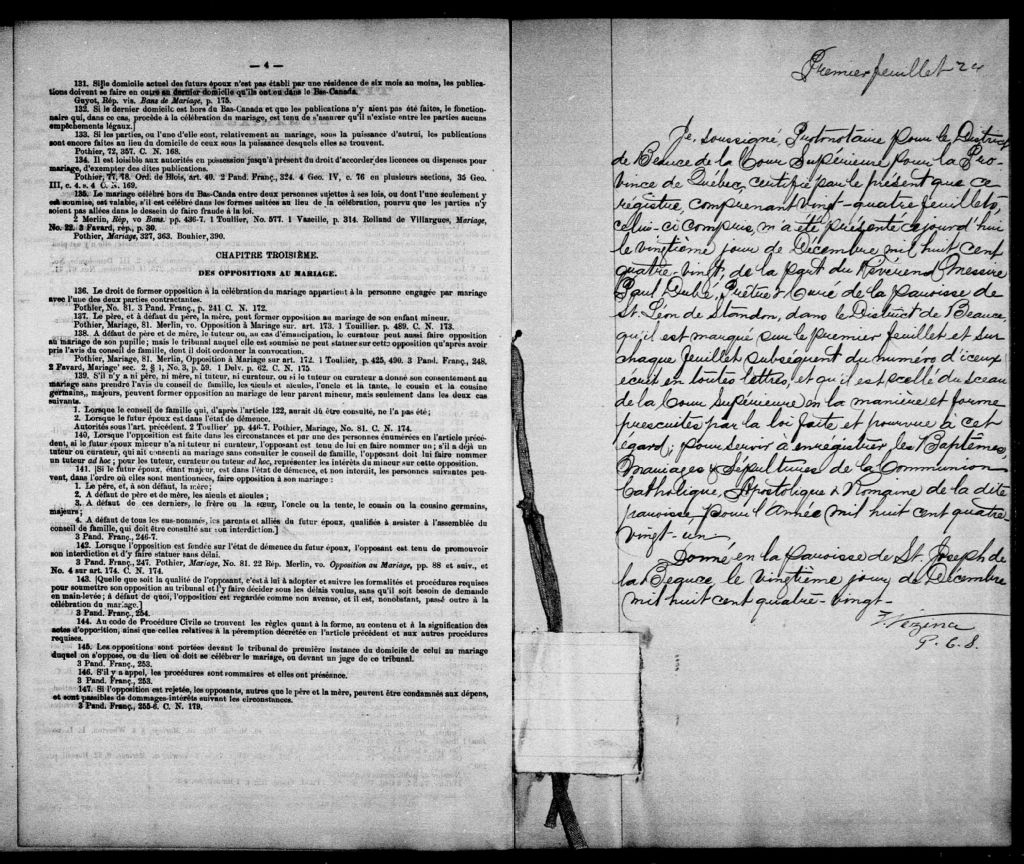 — 4 —
131. Si le domicile actuel des futurs époux n'est pas établi par une résidence de six mois au moins, les publica-
tions doivent se faire en outre au dernier domicile qu'ils ont eu dans le Bas-Canada.
Guyot, Rép. vis. Bans de Mariage, p. 175.
132. Si le dernier domicile est hors du Bas-Canada et que les publications n'y aient pas été faites, le fonction-
naire qui, dans ce cas, procède à la célébration du mariage, est tenu de s'assurer qu'il n'existe entre les parties aucuns
empêchements légaux.]
133. Si les parties, ou l'une d'elle sont, relativement au mariage, sous la puissance d'autrui, les publications
sont encore faites au lieu du domicile de ceux sous la puissance desquels elles se trouvent.
Pothier, 72, 357. C. N. 168.
134. Il est loisible aux autorités en possession jusqu'à présent du droit d'accorder des licences ou dispenses pour
mariage, d'exempter des dites publications.
Pothier, 77, 78. Ord. de Blois, art. 40. 2 Pand. Franç., 324. 4 Geo. IV, c. 76 en plusieurs sections, 35 Geo.
III, c. 4. s. 4 C. N. 169.
135. Le mariage célébré hors du Bas-Canda entre deux personnes sujettes à ses lois, ou dont l'une seulement y
est soumise, est valable, s'il est célébré dans les formes usitées au lieu de la célébration, pourvu que les parties n'y
soient pas allées dans le dessein de faire fraude à la loi.
2 Merlin, Rép, vo Bans. pp. 436-7. 1 Toullier, No. 577. 1 Vazeille, p. 314. Rolland de Villargues, Mariage,
No. 22. 3 Favard, rép., p. 30.
Pothier, Mariage, 327, 363. Bouhier, 390.
CHAPITRE TROISIÈME.
DES OPPOSITIONS AU MARIAGE.
136. Le droit de former opposition à la célébration du mariage appartient à la personne engagée par mariage
avec l'une des deux parties contractantes.
Pothier, No. 81. 3 Pand. Franç., p. 241 C. N. 172.
137. Le père, et à défaut du père, la mère, peut former opposition au mariage de son enfant mineur.
Pothier, Mariage, 81. Merlin, vo. Opposition à Mariage sur. art. 173. 1 Touillier. p. 489. C. N. 173.
138. A défaut de père et de mère, le tuteur ou, au cas d'émancipation, le curateur peut aussi faire opposition
au mariage de son pupille; mais le tribunal auquel elle est soumise ne peut statuer sur cette opposition qu'après avoir
pris l'avis du conseil de famille, dont il doit ordonner la convocation.
Pothier, Mariage, 81. Merlin, Opposition à Mariage sur art. 172. 1 Toullier, p. 425, 490. 3 Pand. Franç., 248.
2 Favard, Mariage sec. 2, § 1, No. 3, p. 59. 1 Delv. p. 62. C. N. 175
139. S'il n'y a ni père, ni mère, ni tuteur, ni curateur, ou si le tuteur ou curateur a donné son consentement au
mariage sans prendre l'avis du conseil de famille, les aïeuls et aïeules, l'oncle et la tante, le cousin et la cousine
germains,, majeurs, peuvent former opposition au mariage de leur parent mineur, mais seulement dans les deux cas
suivants.
1. Lorsque le conseil de famille qui, d'après l'article 122, aurait dû être consulté, ne l'a pas été;
2. Lorsque le futur époux est dans l'état de démence.
Autorités sous l'art. précédent. 2 Toullier pp. 446-7. Pothier, Mariage, No. 81. C. N. 174.
140. Lorsque l'opposition est faite dans les circonstances et par une des personnes énumérées en l'article précé-
dent, si le futur époux mineur n'a ni tuteur ni curateur, l'opposant est tenu de lui en faire nommer un; s'il a déjà un
tuteur ou curateur, qui ait consenti au mariage sans consulter le conseil de famille, l'opposant doit lui faire nommer
un tuteur ad hoc; pour les tuteur, curateur ou tuteur ad hoc, représenter les intérêts du mineur sur cette opposition.
141. [Si le futur époux, étant majeur, est dans l'état de démence, et non interdit, les personnes suivantes peu-
vent, dans l'ordre où elles sont mentionnées, faire opposition à son mariage:
1. Le père, et, à son défaut, la mère;
2. A défaut de père et de mère, les aïeuls et aïeules;
3. A défaut de ces derniers, le frère ou la sœur, l'oncle ou la tante, le cousin ou la cousine germains,
majeurs;
4. A défaut de tous les sus-nommés, les parents et alliés du futur époux, qualifiés à assister à l'assemblée du
conseil de famille, qui doit être consulté sur son interdiction.]
3 Pand. Franç., 246-7.
142. Lorsque l'opposition est fondée sur l'état de démence du futur époux, l'opposant est tenu de promouvoir
son interdiction et d'y faire statuer sans délai.
3 Pand. Franç., 247. Pothier, Mariage, No. 81. 22 Rép. Merlin, vo. Opposition au Mariage, pp. 88 et suiv., et
No. 4 sur art. 174. C. N. 174.
143. [Quelle que soit la qualité de l'opposant, c'est à lui à adopter et suivre les formalités et procédures requises
pour soumettre son opposition au tribunal et l'y faire décider sous les délais voulus, sans qu'il soit besoin de demande
en main-levée; à défaut de quoi, l'opposition est regardée comme non avenue, et il est, nonobstant, passé outre à la
célébration du mariage.]
3 Pand. Franç., 254.
144. Au code de Procédure Civile se trouvent les règles quant à la forme, au contenu et à la signification des
actes d'opposition, ainsi que celles relatives à la péremption décrétée en l'article précédent et aux autres procédures
requises.
145. Les oppositions sont portées devant le tribunal de première instance du domicile de celui au mariage
duquel on s'oppose, ou du lieu où doit se célébrer le mariage, ou devant un juge de ce tribunal.
3 Pand. Franç., 253.
146. S'il y a appel, les procédures sont sommaires et elles ont préséance.
3 Pand. Franç., 253.
147. Si l'opposition est rejetée, les opposants, autres que le père et la mère, peuvent être condamnés aux dépens,
et sont passibles de dommages-intérêts suivant les circonstances.
3 Pand. Franç., 255-6. C. N. 179.
Premier feuillet 24
Je, soussigné, Protonotaire pour le District
de Beauce de la Cour Supérieure pour la Pro-
vince de Québec, certifie par le présent que ce
régistre, comprenant vingt-quatre feuillets,
celui-ci compris, m'a été présenté aujourd'hui
le vingtième jour de Décembre mil huit cent
quatre-vingt, de la part du Révérend Messire
Paul Dubé, Prêtre & Curé de la paroisse de
St. Léon de Standon, dans le District de Beauce,
qu'il est marqué sur le premier feuillet et sur
chaque feuillet subséquent du numéro d'iceux
écrit en toutes lettres, et qu'il est scellé du sceau
de la Cour Supérieure en la manière et forme
prescrites par la loi faite et pourvue à cet
égard; pour servir à enregistrer les Baptêmes,
Mariages & Sépultures de la Communion
Catholique, Apostolique & Romaine de la dite
paroisse pour l'Année mil huit cent quatre
vingt-un
Donné en la paroisse de St. Joseph de
la Beauce, le vingtième jour de Décembre
mil huit cent quatre-vingt-
Z. Vézina
P. C. S.